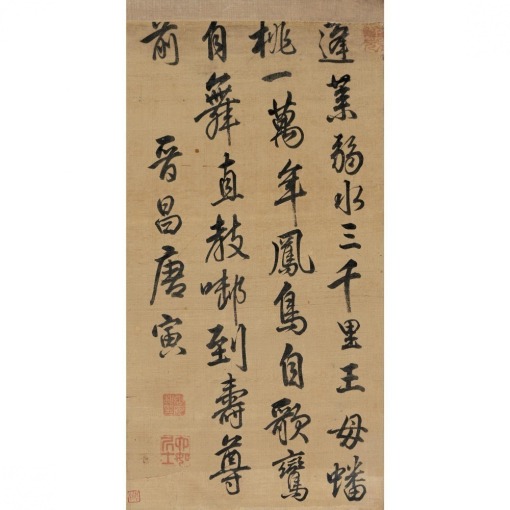 蓬萊弱水三千里王母蟠
桃一萬年鳳鳥自歌鸞
自舞直教啣到壽尊
前
晉昌唐寅
六如居士